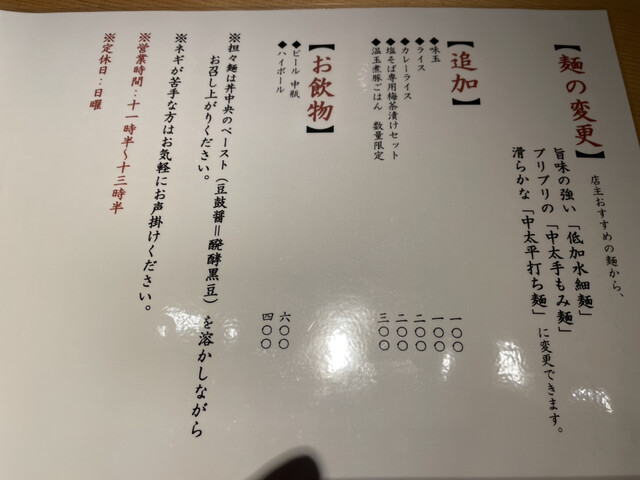 【麺の変更】
店主おすすめの麺から、
旨味の強い「低加水細麺」
プリプリの「中太手もみ麺」
滑らかな「中太平打ち麺」
に変更できます。
【追加】
◆味玉 一〇〇
◆ライス 一〇〇
◆カレーライス 二〇〇
◆塩そば専用梅茶漬けセット 二〇〇
◆温玉煮豚ごはん 数量限定 三〇〇
【お飲物】
◆ビール 中瓶 六〇〇
◆ハイボール 四〇〇
※担々麺は丼中央のペースト（豆鼓醤＝醗酵黒豆）を溶かしながら
お召し上がりください。
※ネギが苦手な方はお気軽にお声掛けください。
※営業時間：十一時半～十三時半
※定休日：日曜